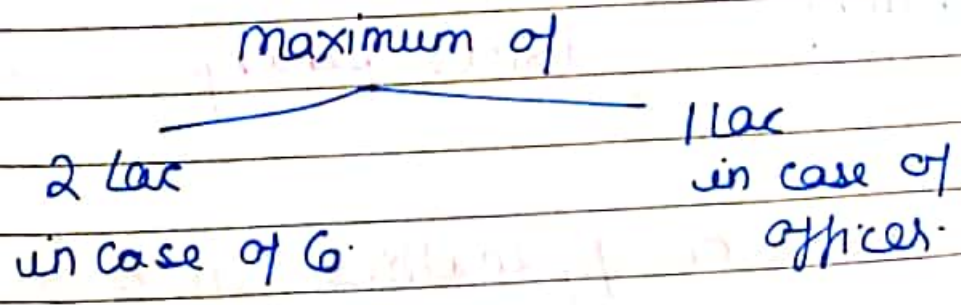 Maximum of
2 Lac
in case of Co.
1 Lac
in case of
officer.